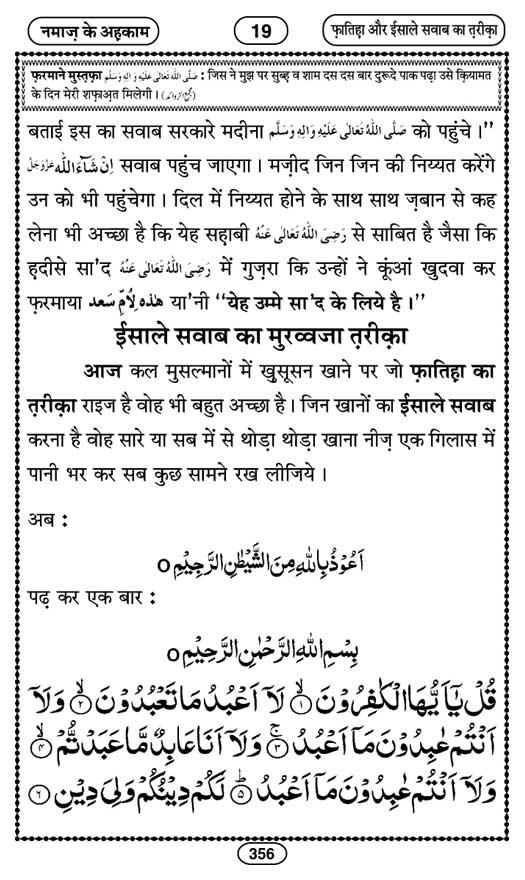 नमाज़ के अह़काम
19
फ़ातिह़ा और ईसाले सवाब का त़रीक़ा
फ़रमाने मुस्त़फ़ा صَلَّى اللّٰهُ تَعَالٰى عَلَيْهِ وَ اٰلِهٖ وَسَلَّم : जिस ने मुझ पर सुब्ह़ व शाम दस दस बार दुरूदे पाक पढ़ा उसे क़ियामत
के दिन मेरी शफ़ाअ़त मिलेगी । (مجمع الزوائد)
बताई इस का सवाब सरकारे मदीना صَلَّى اللّٰهُ تَعَالٰى عَلَيْهِ وَاٰلِهٖ وَسَلَّم को पहुंचे ।”
اِنْ شَآءَ اللّٰه عَزَّوَجَلَّ सवाब पहुंच जाएगा । मज़ीद जिन जिन की निय्यत करेंगे
उन को भी पहुंचेगा । दिल में निय्यत होने के साथ साथ ज़बान से कह
लेना भी अच्छा है कि येह सह़ाबी رَضِىَ اللّٰهُ تَعَالٰى عَنْهُ से साबित है जैसा कि
ह़दीसे सा’द رَضِىَ اللّٰهُ تَعَالٰى عَنْهُ में गुज़रा कि उन्हों ने कूंआं खुदवा कर
फ़रमाया هٰذِهٖ لِاُمِّ سَعد या’नी “येह उम्मे सा’द के लिये है ।”
ईसाले सवाब का मुरव्वजा त़रीक़ा
आज कल मुसल्मानों में ख़ुसूसन खाने पर जो फ़ातिह़ा का
त़रीक़ा राइज है वोह भी बहुत अच्छा है । जिन खानों का ईसाले सवाब
करना है वोह सारे या सब में से थोड़ा थोड़ा खाना नीज़ एक गिलास में
पानी भर कर सब कुछ सामने रख लीजिये ।
अब :
اَعُوْذُ بِاللّٰهِ مِنَ الشَّيْطٰنِ الرَّجِيْمِ ○
पढ़ कर एक बार :
بِسْمِ اللّٰهِ الرَّحْمٰنِ الرَّحِيْمِ ○
قُلْ يٰۤاَيُّهَا الْكٰفِرُوْنَ ۙ﴿۱﴾ لَاۤ اَعْبُدُ مَا تَعْبُدُوْنَ ۙ﴿۲﴾ وَلَاۤ
اَنْتُمْ عٰبِدُوْنَ مَاۤ اَعْبُدُ ۚ﴿۳﴾ وَلَاۤ اَنَا عَابِدٌ مَّا عَبَدْتُّمْ ۙ﴿۴﴾
وَلَاۤ اَنْتُمْ عٰبِدُوْنَ مَاۤ اَعْبُدُ ؕ﴿۵﴾ لَكُمْ دِيْنُكُمْ وَلِىَ دِيْنِ ﴿۶﴾
356